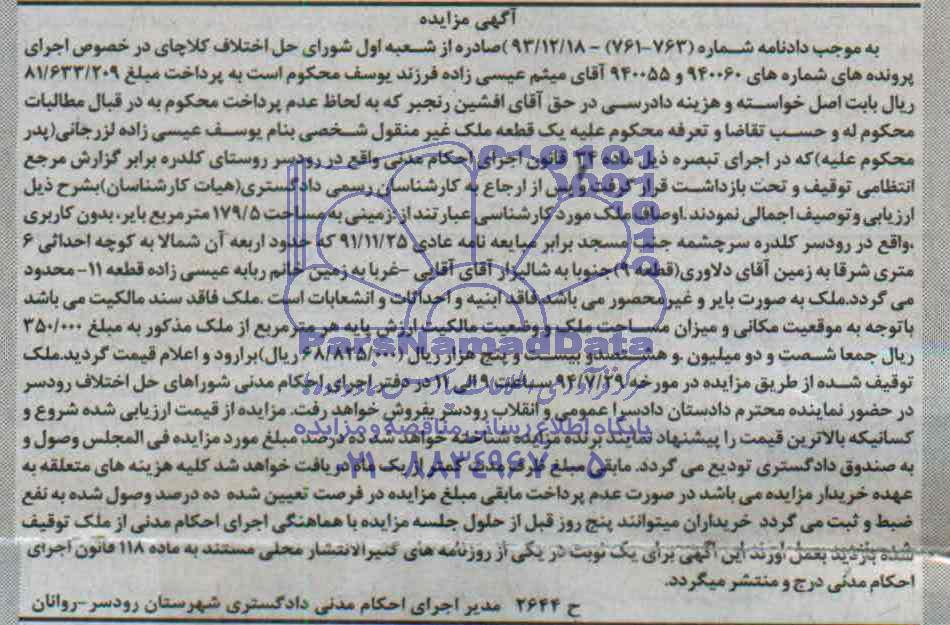 آگهی مزایده
به موجب دادنامه شماره (۷۶۳-۷۶۱) – ۹۳/۱۲/۱۸ )صادره از شعبه اول شورای حل اختلاف کلاچای در خصوص اجرای
پرونده های شماره های ۹۴۰۰۶۰ و ۹۴۰۰۵۵ آقای میثم عیسی زاده فرزند یوسف محکوم است به پرداخت مبلغ ۸۱/۶۳۳/۲۰۹
ریال بابت اصل خواسته و هزینه دادرسی در حق آقای افشین رنجبر که به لحاظ عدم پرداخت محکوم به در قبال مطالبات
محکوم له و حسب تقاضا و تعرفه محکوم علیه یک قطعه ملک غیر منقول شخصی بنام یوسف عیسی زاده لزرجانی(پدر
محکوم علیه)که در اجرای تبصره ذیل ماده ۳۴ قانون اجرای احکام مدنی واقع در رودسر روستای کلدره برابر گزارش مرجع
انتظامی توقیف و تحت بازداشت قرار گرفت و پس از ارجاع به کارشناسان رسمی دادگستری(هیات کارشناسان)بشرح ذیل
ارزیابی وتوصیف اجمالی نمودند.اوصاف ملک مورد کارشناسی عبارتند از:زمینی به مساحت ۱۷۹/۵ متر مربع بایر،بدون کاربری
،واقع در رودسر کلدره سرچشمه جنب مسجد برابر مبایعه نامه عادی ۹۱/۱۱/۲۵ که حدود اربعه آن شمالا به کوچه احداثی ۶
متری شرقا به زمین آقای دلاوری(قطعه ۹)جنوبا به شالیزار آقای آقایی –غربا به زمین خانم ربابه عیسی زاده قطعه ۱۱- محدود
می گردد.ملک به صورت بایر و غیر محصور می باشد.فاقد ابنیه و احداثات و انشعابات است .ملک فاقد سند مالکیت می باشد
باتوجه به موقعیت مکانی و میزان مساحت ملک و وضعیت مالکیت ارزش پایه هر متر مربع از ملک مذکور به مبلغ ۳۵۰/۰۰۰
ریال جمعا شصت و دو میلیون .و هشتصدو بیست و پنج هزار ریال (۶۸/۸۲۵/۰۰۰ ریال)برارود و اعلام قیمت گردید.ملک
توقیف شده از طریق مزایده در مورخه ۹۴/۷/۲۹ ساعت ۹ الی ۱۱ در دفتر اجرای احکام مدنی شوراهای حل اختلاف رودسر
در حضور نماینده محترم دادستان دادسرا عمومی و انقلاب رودسر بفروش خواهد رفت. مزایده از قیمت ارزیابی شده شروع و
کسانیکه بالاترین قیمت را پیشنهاد نمایند برنده مزایده شناخته خواهد شد ده درصد مبلغ مورد مزایده فی المجلس وصول و
به صندوق دادگستری تودیع می گردد. مابقی مبلغ ظرف مدت کمتر از یک ماه دریافت خواهد شد کلیه هزینه های متعلقه به
عهده خریدار مزایده می باشد در صورت عدم پرداخت مابقی مبلغ مزایده در فرصت تعیین شده ده درصد وصول شده به نفع
ضبط و ثبت می گردد خریداران میتوانند پنج روز قبل از حلول جلسه مزایده با هماهنگی اجرای احکام مدنی از ملک توقیف
شده بازدید بعمل آورند این آگهی برای یک نوبت در یکی از روزنامه های کثیرالانتشار محلی مستند به ماده ۱۱۸ قانون اجرای
احکام مدنی درج و منتشر میگردد.
ح ۲۶۴۴ مدیر اجرای احکام مدنی دادگستری شهرستان رودسر-روانان
ParsNamadData
پایگاه اطلاع رسانی مناقصه و مزایده
۰۲۱-۸۸۳۴۹۶۷۰-۵